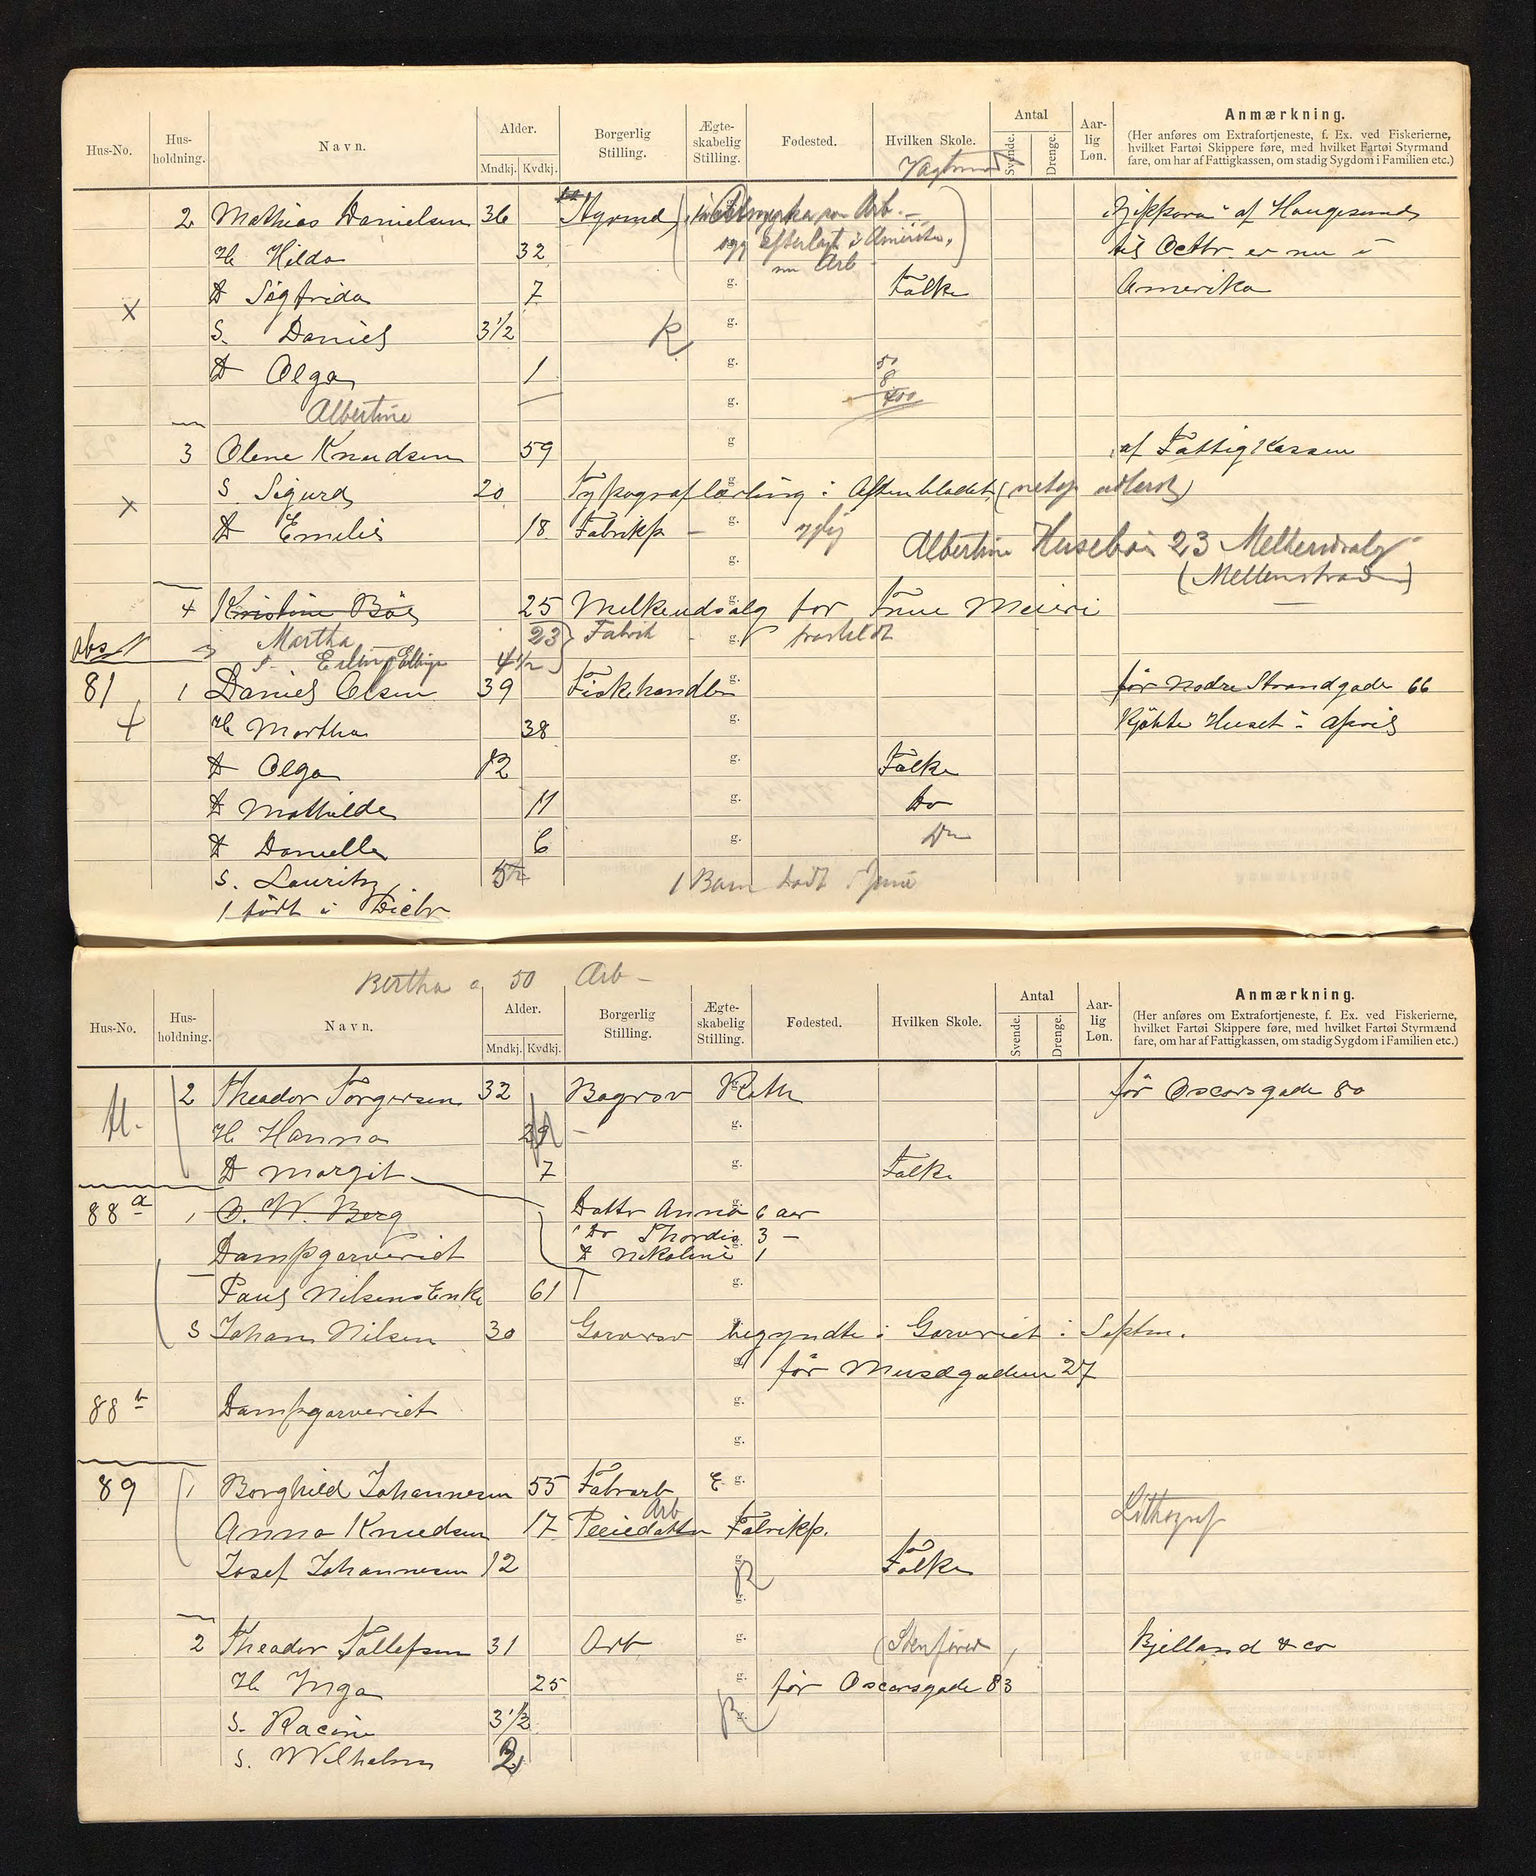 Hus-No. Hus-holdning. Navn. Alder. Mndkj. Kvdkj. Borgerlig Stilling. Ægte-skabelig Stilling. Fødested. Hvilken Skole. Antal Svende. Drenge. Aar-lig Løn. Anmærkning.
(Her anføres om Extrafortjeneste, f. Ex. ved Fiskerierne, hvilket Fartøi Skippere føre, med hvilket Fartøi Styrmand fare, om har af Fattigkassen, om stadig Sygdom i Familien etc.)
2 Mathias Danielsen 36 Styrmd Arb. af Haugesund
H Hilda 32 i Amerika, nu Arb til Octbr er nu i
D Sigfrida 7 g. Falke Amerika
S. Daniel 3 1/2 R g.
D Olga 1 g. 50 8 400
Albertine g.
3 Olene Knudsen 59 g af Fattigkassen
S Sigurd 20 Typograflærling i Aftenbladet (netop udlært)
D Emilie 18 Fabrikp - g. Albertine Husebø 23 Melkeudsalg
g.
4 Kristine Bøe 25 Melkeudsalg for Frue Meieri
Martha 23 Fabrik - g. fraskildt
S. Erling 4 1/2
81 1 Daniel Olsen 39 Fiskehandler g. før Nedre Strandgade 66
H Martha 38 g. Kjøbte Huset i April
D Olga 12 g. Falke
D Mathilde 11 g. Do
D Danielle 6 g. Do
S. Lauritz 1 Barn Født i Juni
1 født i Decbr
Bertha 50 Arb -
Hus-No. Hus-holdning. Navn. Alder. Mndkj. Kvdkj. Borgerlig Stilling. Ægte-skabelig Stilling. Fødested. Hvilken Skole. Antal Svende. Drenge. Aar-lig Løn. Anmærkning.
(Her anføres om Extrafortjeneste, f. Ex. ved Fiskerierne, hvilket Fartøi Skippere føre, med hvilket Fartøi Styrmænd fare, om har af Fattigkassen, om stadig Sygdom i Familien etc.)
2 Theodor Torgersen 32 Bagersv før Oscarsgade 80
H Hanna 29 - g.
D Margit 7 g. Falke
88 a 1 O. W. Berg Datter Anna 6 aar
Dampgarveriet Do Thordis 3 -
D Nikoline 1
Paul Nilsens Enke 61 g.
S Johan Nilsen 30 Garversv begyndte i Garveriet i Septm.
g. før Musægaden 27
88 b Dampgarveriet g.
g.
89 1 Borghild Johannesen 55 Fabrarb E g.
Anna Knudsen 17 Pleiedatter Arb Fabrikp. Lithograf
Josef Johannesen 12 g. R Falke
g.
2 Theodor Tollefsen 31 Arb g. Kjelland & co
H Inga 25 g. før Oscarsgade 83
S. Racin 3 1/2 R g.
S. Wilhelm 2